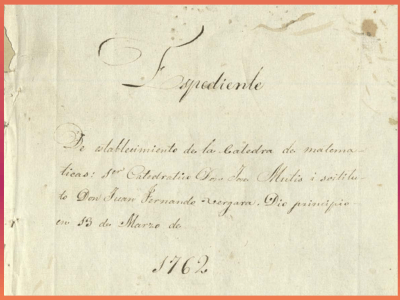 Expediente
De establecimiento de la Catedra de matema-
ticas: 1er Catedratico Don José Mutis i sostitu-
to Don Juan Fernando Vergara. Dio principio
en 13 de Marzo de
1762